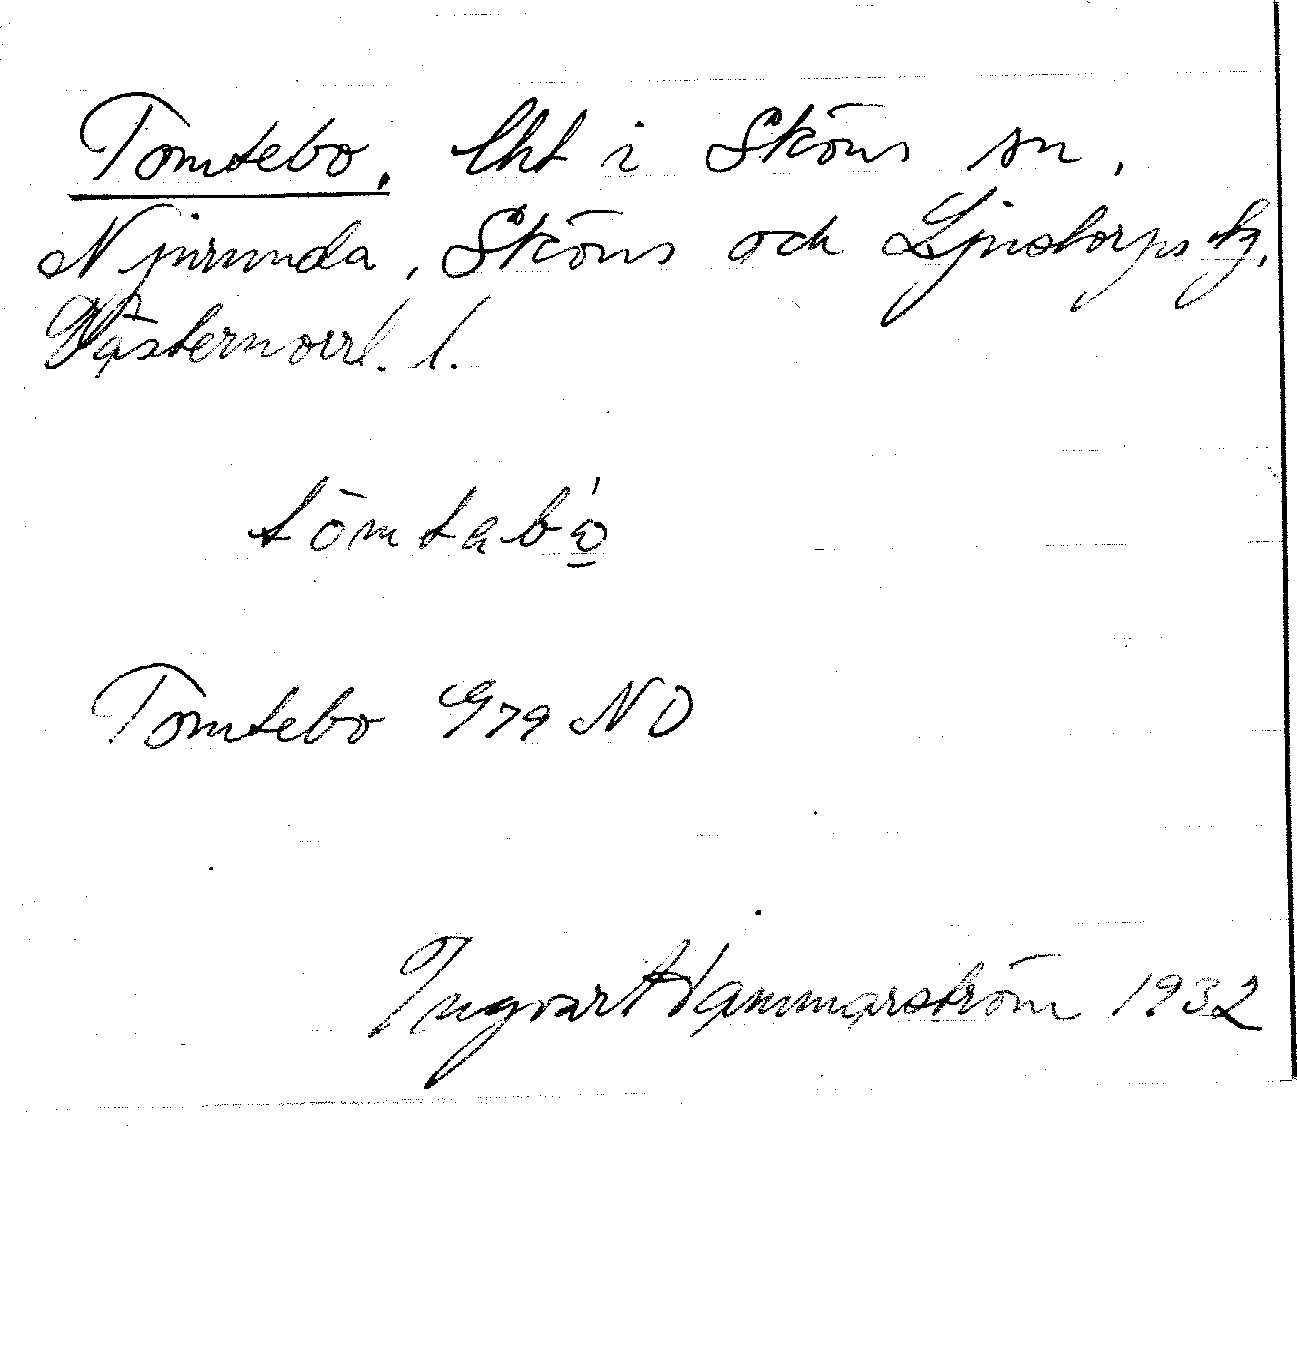 Tomtebo. lht i Sköns sn,
Njurunda, Sköns och Ljustorps tg,
Västernorrl. l.
tömtabò̱
Tomtebo G79 NO
Ingvar Hammarström 1932